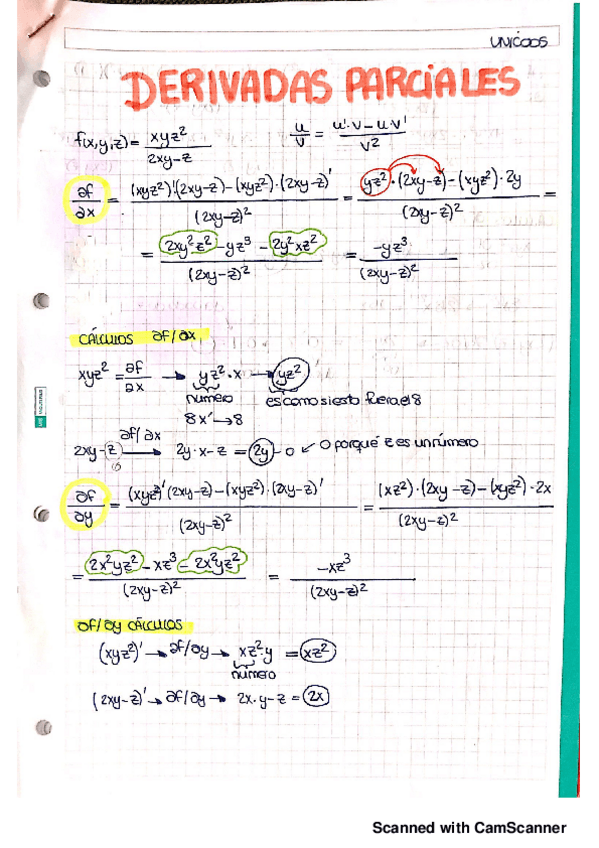 UNICOOS
DERIVADAS PARCIALES
f(x,y,z) = xyz² / 2xy-z    u/v = u'·v - u·v' / v²
∂f/∂x = (xyz²)'·(2xy-z) - (xyz²)·(2xy-z)' / (2xy-z)² = yz²·(2xy-z) - (xyz²)·2y / (2xy-z)² =
= 2xy²z² - yz³ - 2y²xz² / (2xy-z)² = -yz³ / (2xy-z)²
CÁLCULOS ∂f/∂x
xyz² = ∂f/∂x → yz²·x → yz²
número    es como si esto fuera el 8
8x' → 8
2xy-z ∂f/∂x → 2y·x-z = 2y-0 ↙ 0 porque z es un número
∂f/∂y = (xyz²)'(2xy-z) - (xyz²)·(2xy-z)' / (2xy-z)² = (xz²)·(2xy-z) - (xyz²)·2x / (2xy-z)²
= 2x²yz² - xz³ - 2x²yz² / (2xy-z)² = -xz³ / (2xy-z)²
∂f/∂y CÁLCULOS
(xyz²)' → ∂f/∂y → xz²·y = xz²
número
(2xy-z)' → ∂f/∂y → 2x·y-z = 2x
Scanned with CamScanner